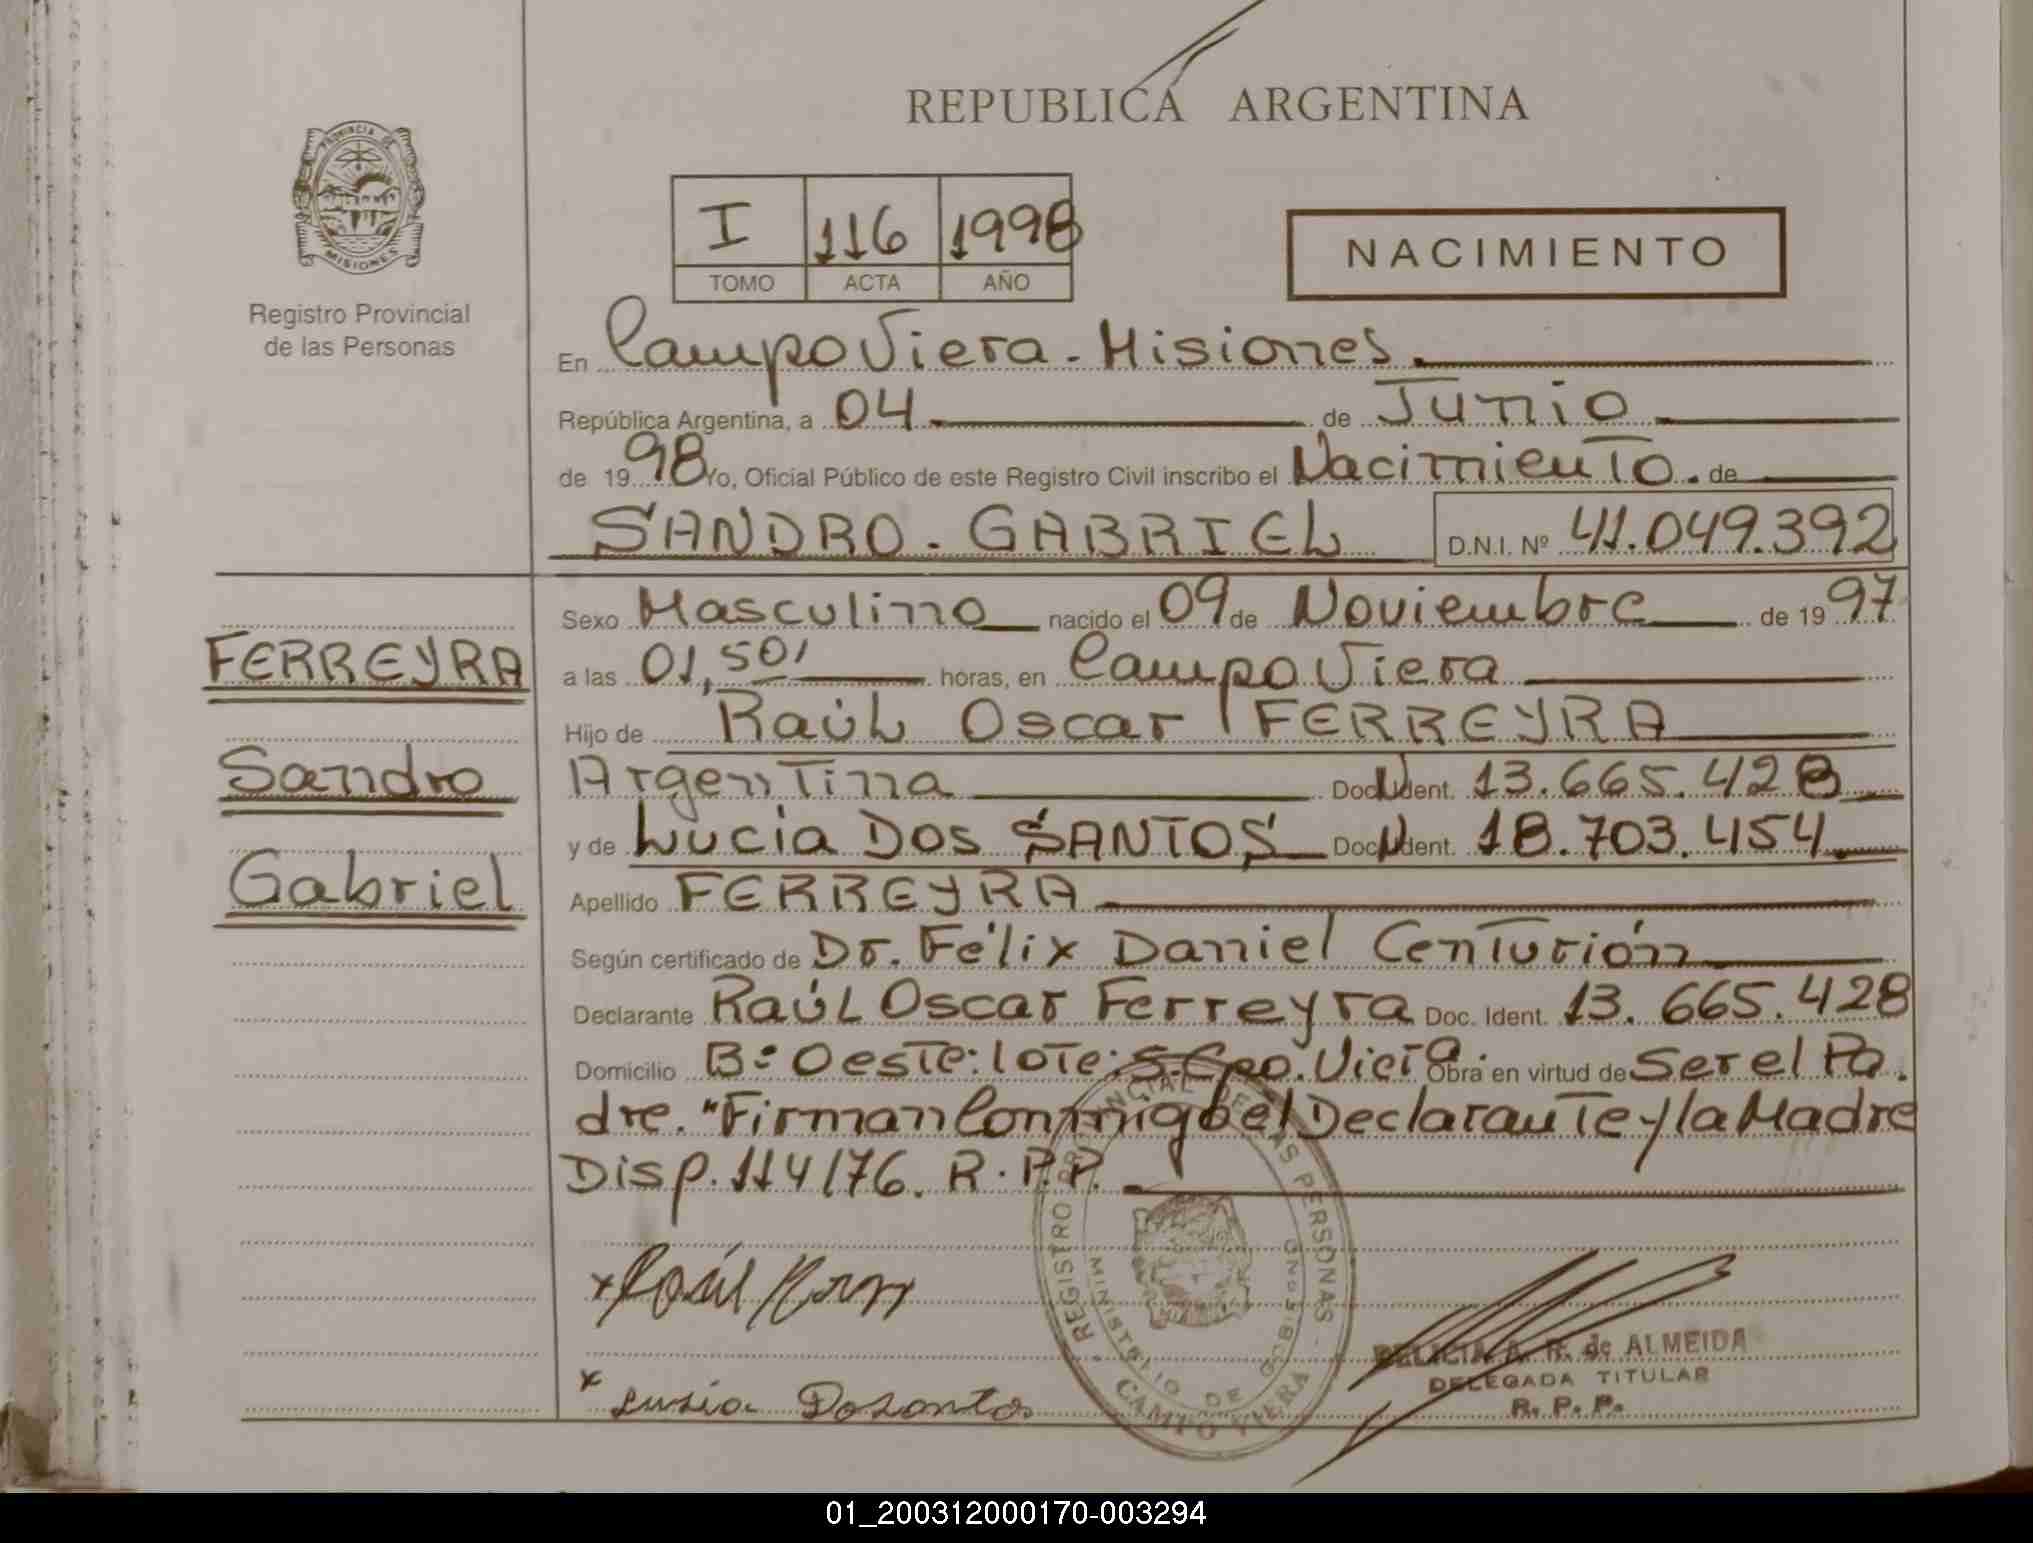 REPUBLICA ARGENTINA
PROVINCIA DE
MISIONES
Registro Provincial
de las Personas
I 116 1998
TOMO ACTA AÑO
NACIMIENTO
En Campo Viera - Misiones.
República Argentina, a 04 de Junio
de 19 98 Yo, Oficial Público de este Registro Civil inscribo el Nacimiento. de
SANDRO - GABRIEL D.N.I. Nº 41.049.392
Sexo Masculino nacido el 09 de Noviembre de 19 97
FERREYRA
a las 01,50' horas, en Campo Viera
Hijo de Raúl Oscar FERREYRA
Sandro
Argentina Doc. Ident. 13.665.428
y de Lucia Dos SANTOS Doc. Ident. 18.703.454
Gabriel
Apellido FERREYRA
Según certificado de Dr. Félix Daniel Centurión
Declarante Raúl Oscar Ferreyra Doc. Ident. 13.665.428
Domicilio B: Oeste: lote: 5. Cpo. Viera Obra en virtud de Ser el Pa.
dre. "Firman Conmigo el Declarante y la Madre
Disp. 114/76. R.P.P.
REGISTRO PROVINCIAL DE LAS PERSONAS
MINISTERIO DE GOBIERNO
CAMPO VIERA
x Raúl
x Lusia Dosantos
DELICIA A. R. de ALMEIDA
DELEGADA TITULAR
R. P. P.
01_200312000170-003294